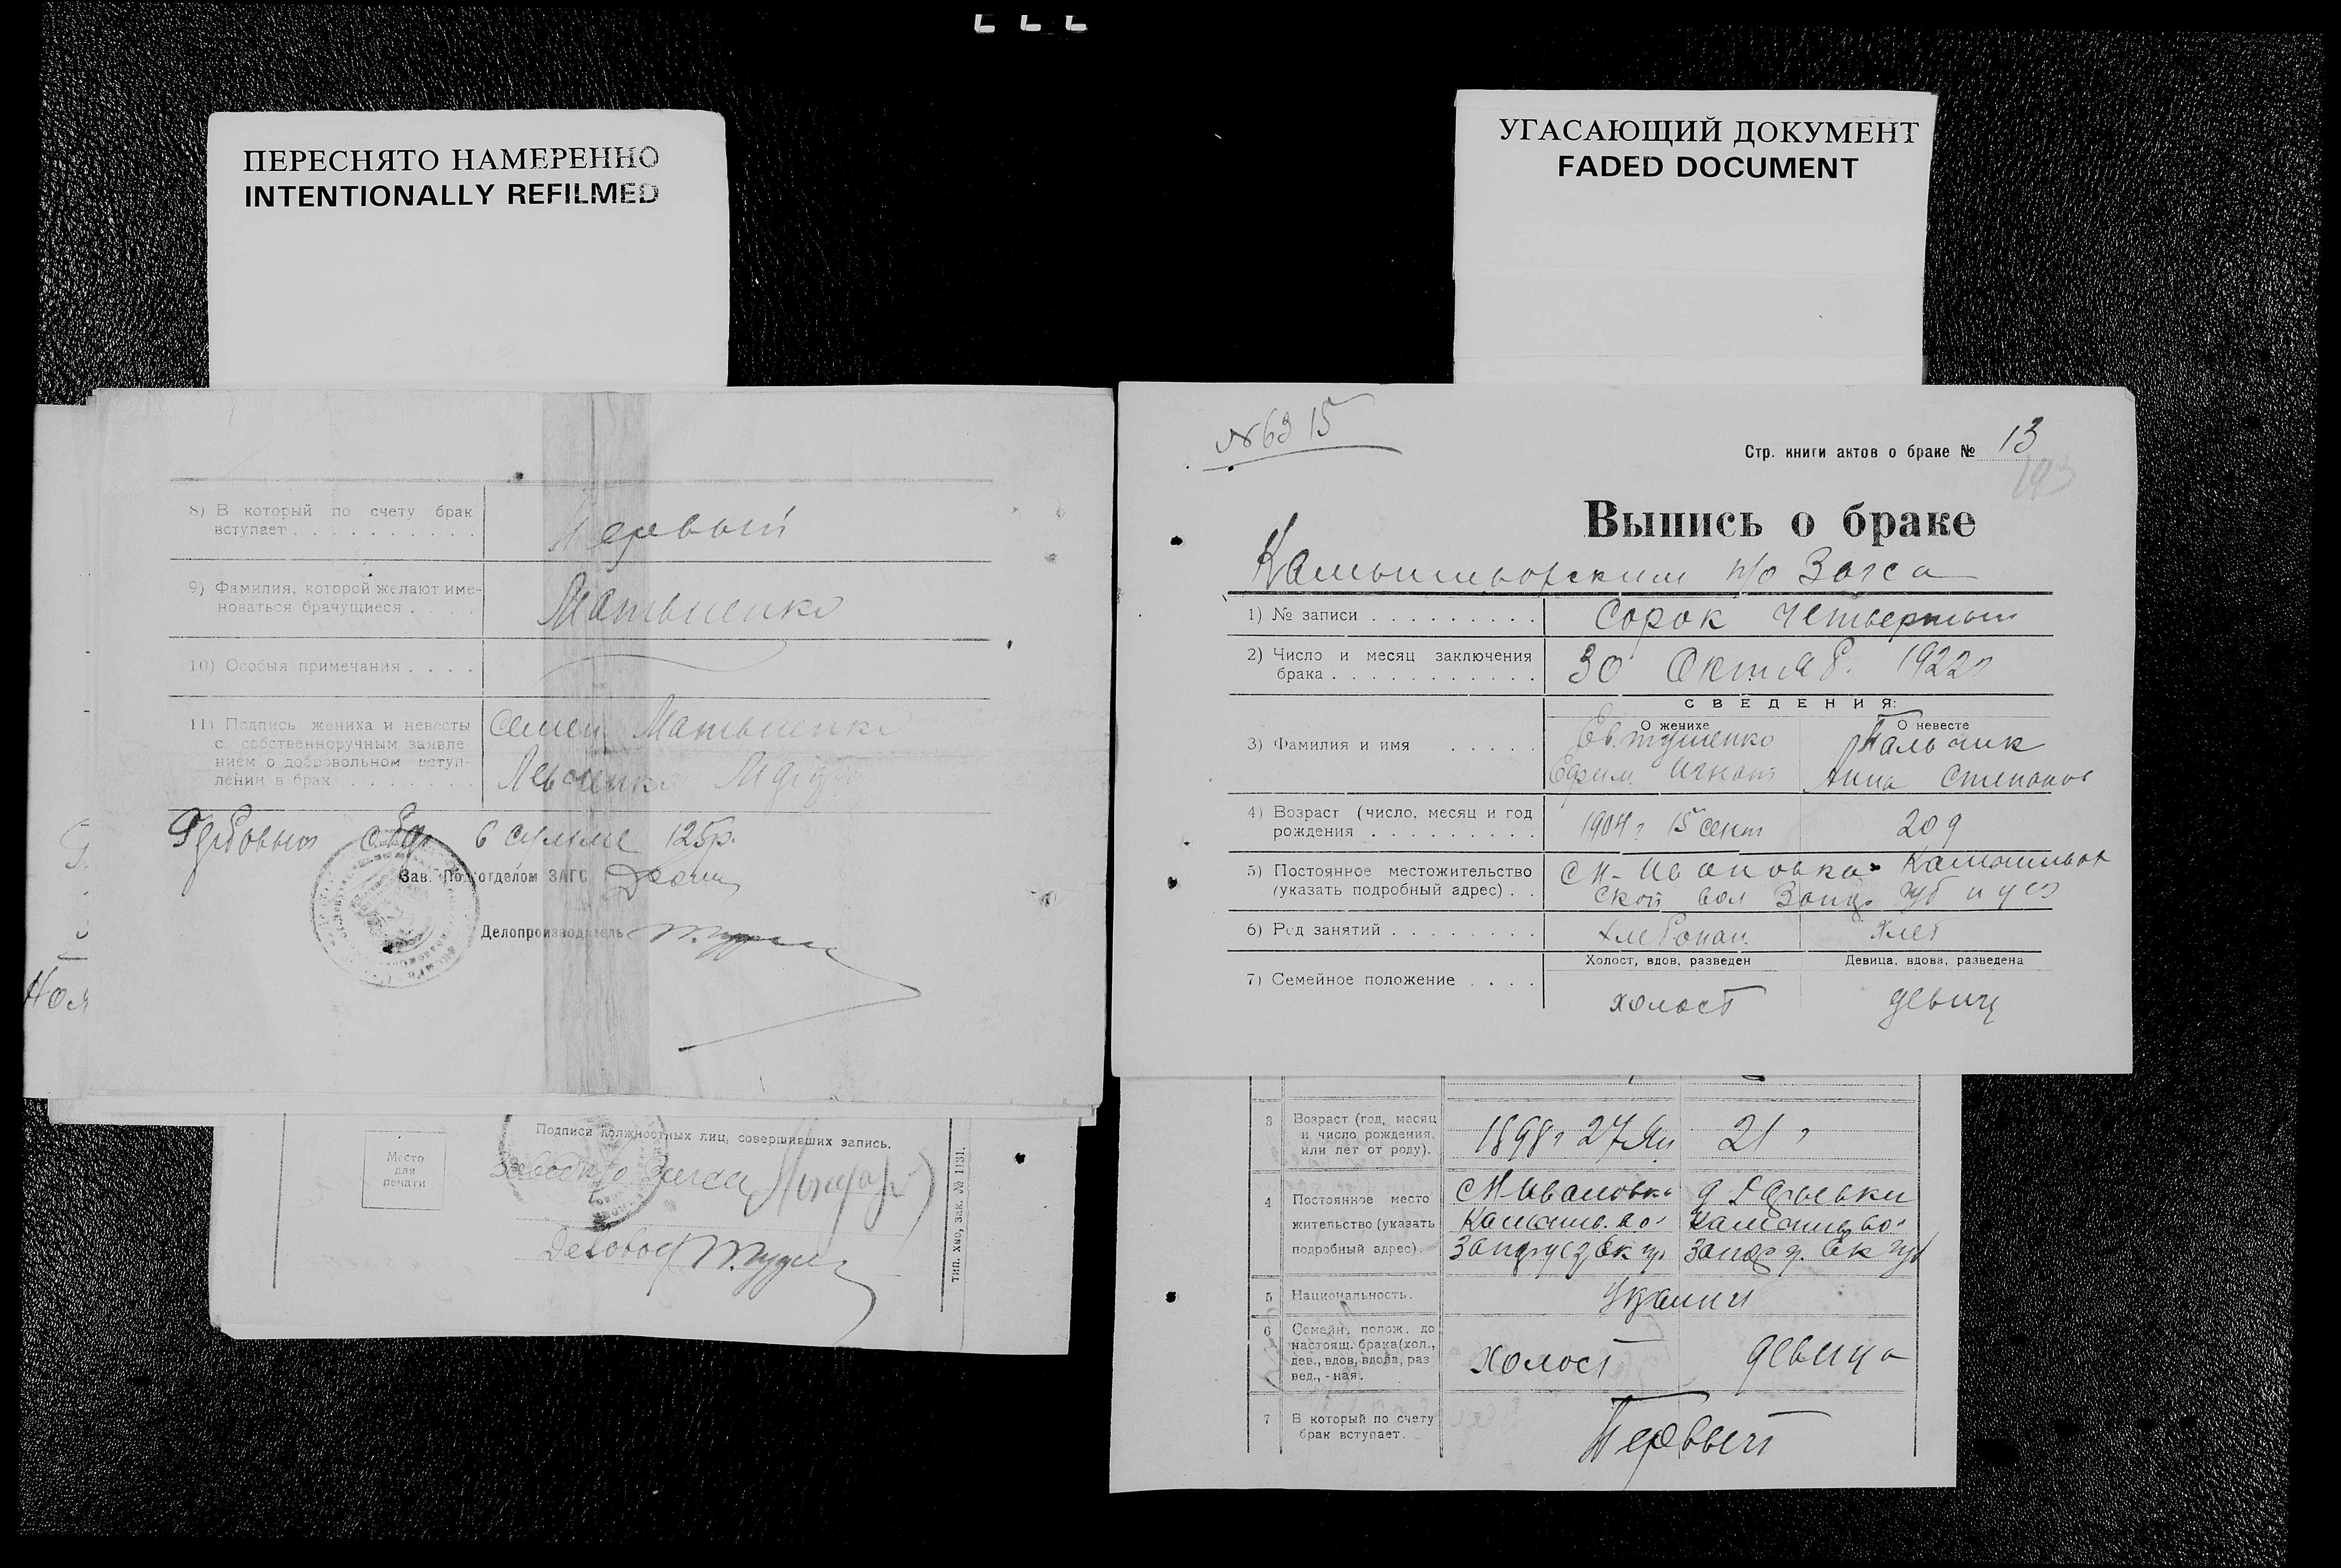 ПЕРЕСНЯТО НАМЕРЕННО
INTENTIONALLY REFILMED
УГАСАЮЩИЙ ДОКУМЕНТ
FADED DOCUMENT
8) В который по счету брак
вступает
Первый
9) Фамилия, которой желают име-
новаться брачущиеся
Матвиенко
10) Особыя примечания
11) Подпись жениха и невесты
с собственноручным заявле
нием о добровольном вступ-
лении в брак
Семен Матвиенко
Левченко
Гербовый сбор в сумме 125р.
Зав. Подотделом ЗАГС
Делопроизводитель
Ноя
Подписи должностных лиц, совершивших запись.
Место
для
печати
Завед п/о Загса
Деловод
тип. Хво, зак. № 1131.
№ 63 15
Стр. книги актов о браке № 13
193
Выпись о браке
п/о Загса
1) № записи
Сорок четвертый
2) Число и месяц заключения
брака
30 Октяб. 1922г
СВЕДЕНИЯ:
О женихе
О невесте
3) Фамилия и имя
Евтушенко
Ефим Игнат
Пальчик
Анна Степанов
4) Возраст (число, месяц и год
рождения
1904 г 15 сент
20 л
5) Постоянное местожительство
(указать подробный адрес)
см-Ивановка Камышевах
ской вол Запор губ и уез
6) Род занятий
хлебопаш.
хлеб
7) Семейное положение
Холост, вдов, разведен
Девица, вдова, разведена
холост
девиц
3 Возраст (год, месяц
и число рождения,
или лет от роду).
1898 г 27 Ян
21 г
4 Постоянное место
жительство (указать
подробный адрес).
см Ивановка
Камыш. во.
Запор уез Ек гу
Камышев во.
Запор у. Ек губ
5 Национальность.
Украинц
6 Семейн. полож. до
настоящ. брака (хол.,
дев., вдов, вдова, раз
вед., -ная.
холост
девица
7 В который по счету
брак вступает.
Первый